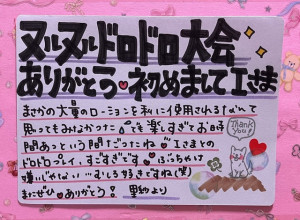 ヌルヌルドロドロ大会
ありがとう 初めましてIさま
まさかの大量のローションを私に使用されるなんて
思ってもみなかった でも楽しすぎてお時
間あっという間だったね Iさまとの
ドロドロプレイ、すごすぎです ぶっちゃけ
嫌いじゃない…むしろ好きですね(笑)
またぜひ ありがとう! より
Thank you!